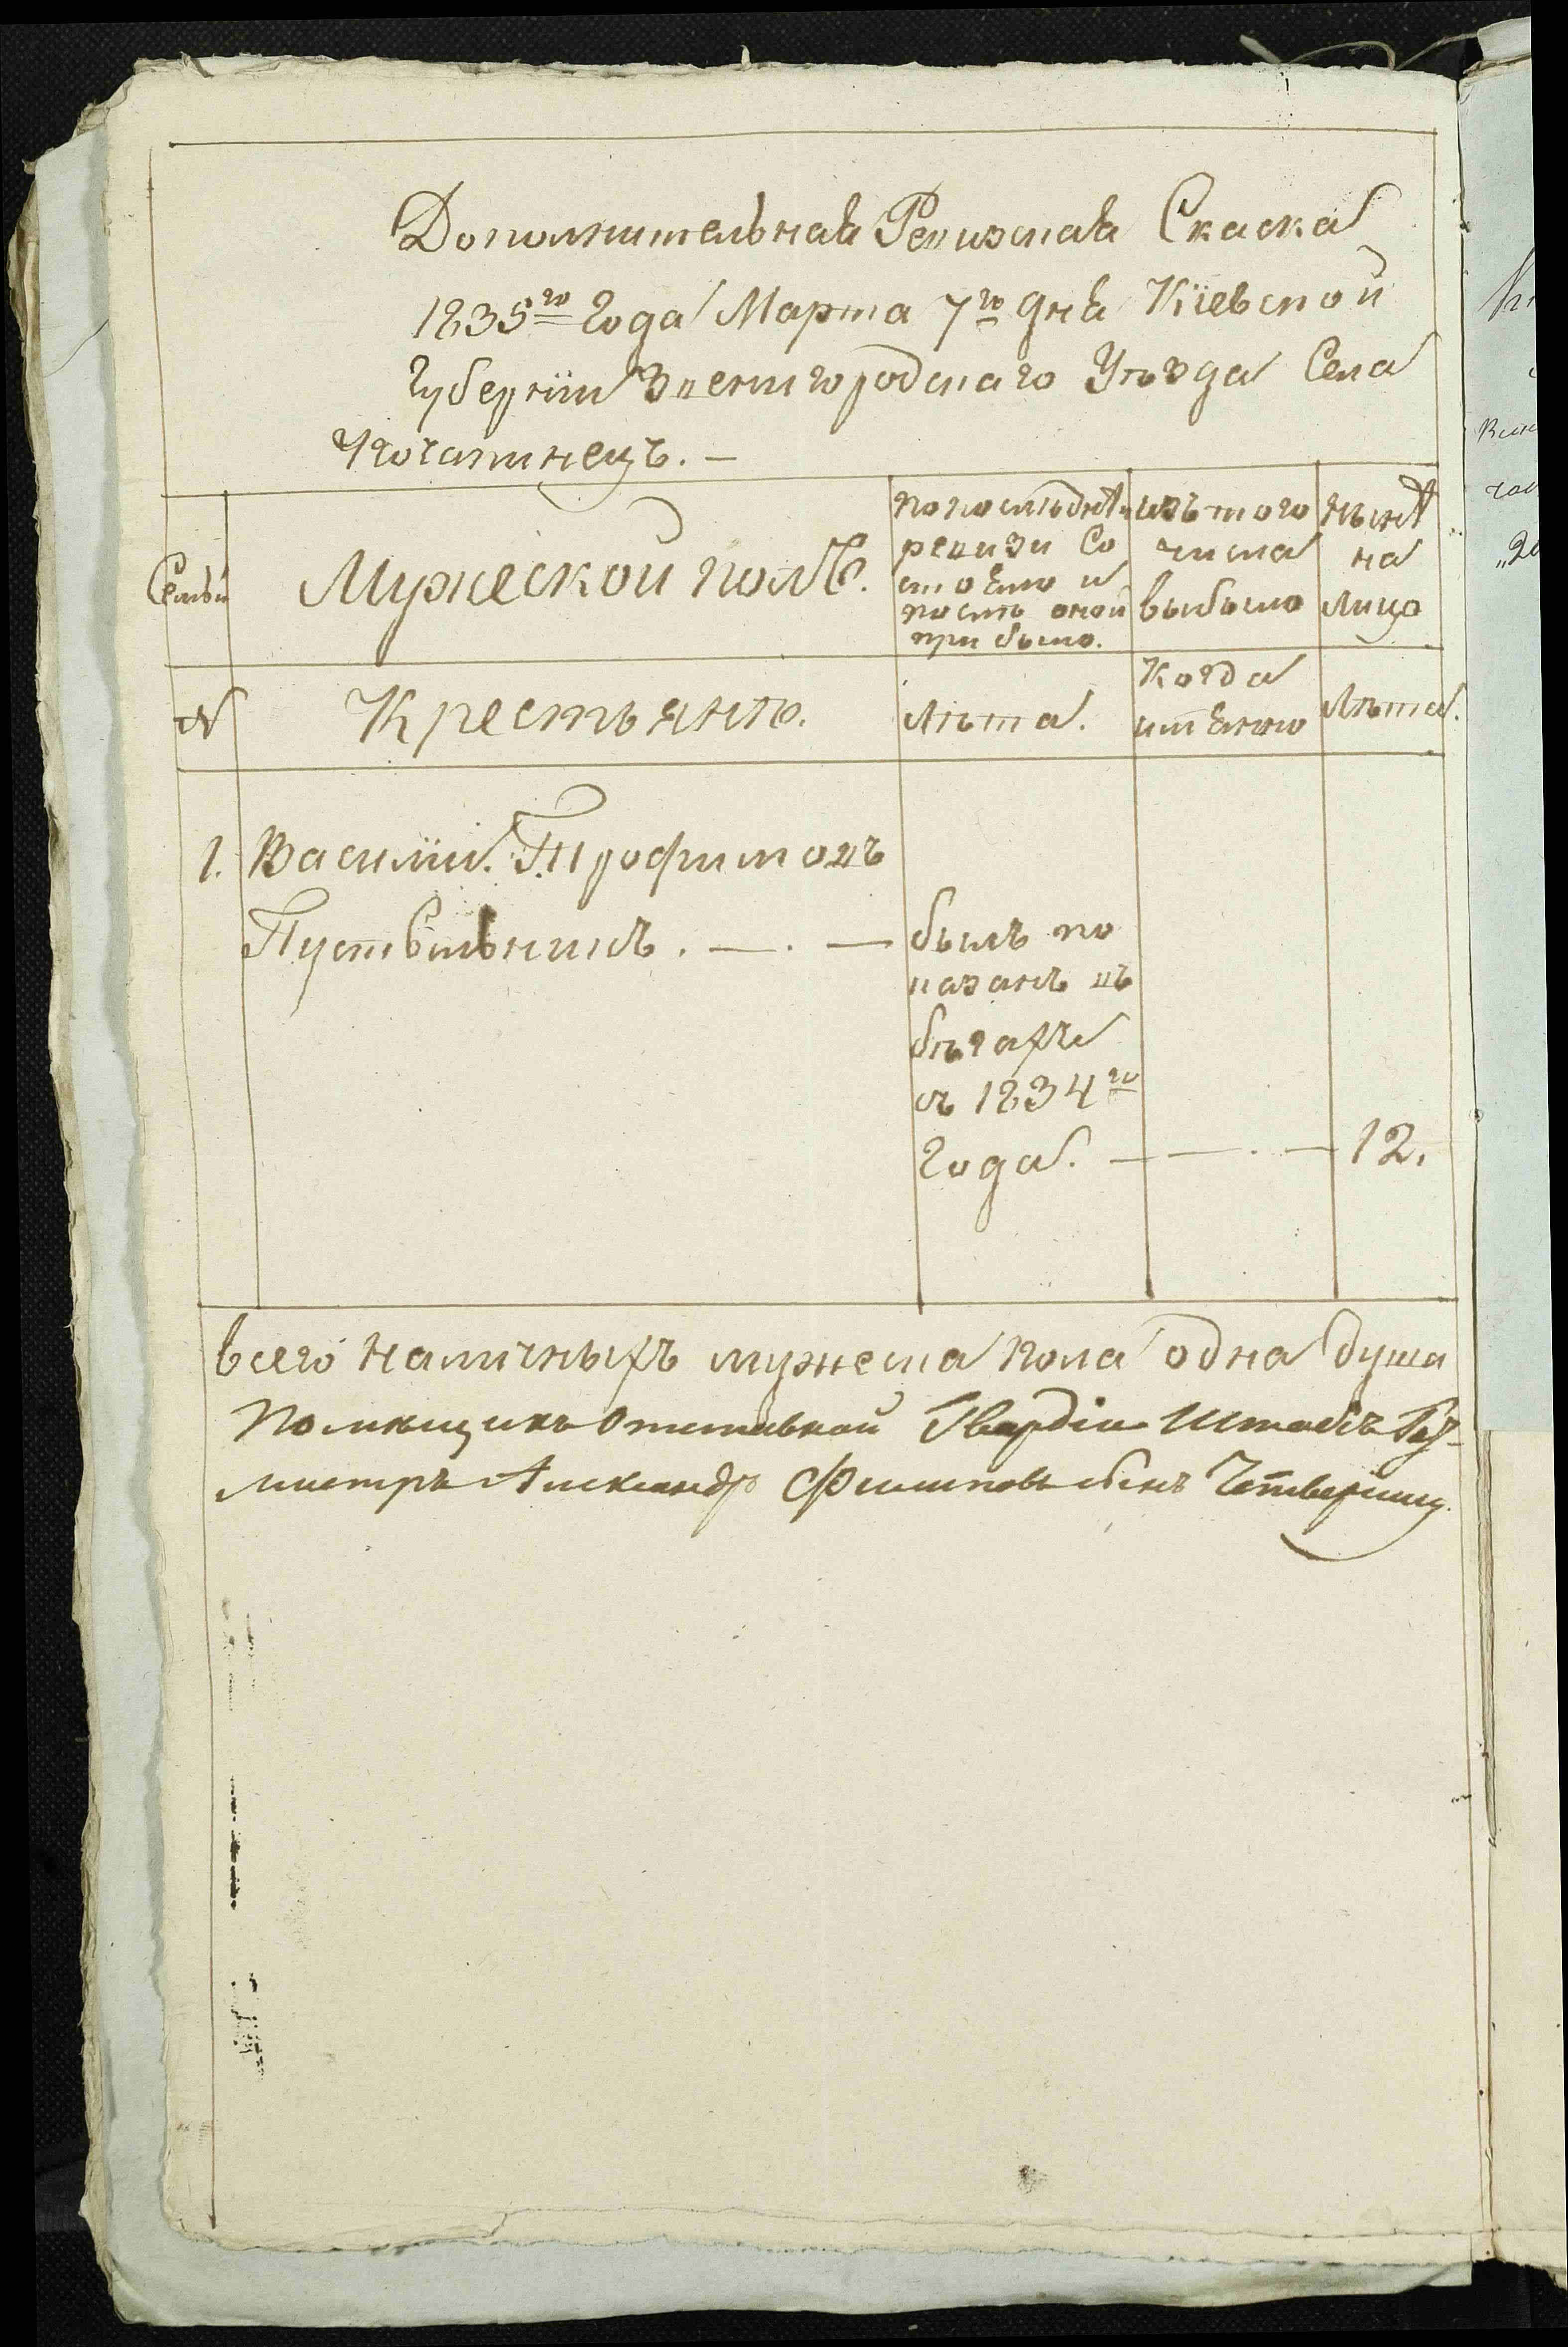 Дополнительная Ревизская Скаска
1835го года Марта 7го дня Кіевской
Губерніи Звенигородскаго Уѣзда Села
Семьи
Мужескои полъ.
по послѣднѣй
ревизи Со
стояло и
послѣ оной
прибыло.
изъ того
числа
выбыло
нынѣ
на
лицо
N
Крестьянъ.
лѣта.
Когда
имянно
Лѣта.
1. Василій Трофимовъ
Пустельникъ. — . —
былъ по
казанъ въ
бѣгахъ
съ 1834го
года. — — . — 12.
всего наличныхъ мужеска пола одна душа
Помѣщикъ Отставной Гвардіи Штабъ Рот-
мистръ Александр Филиповъ сынъ